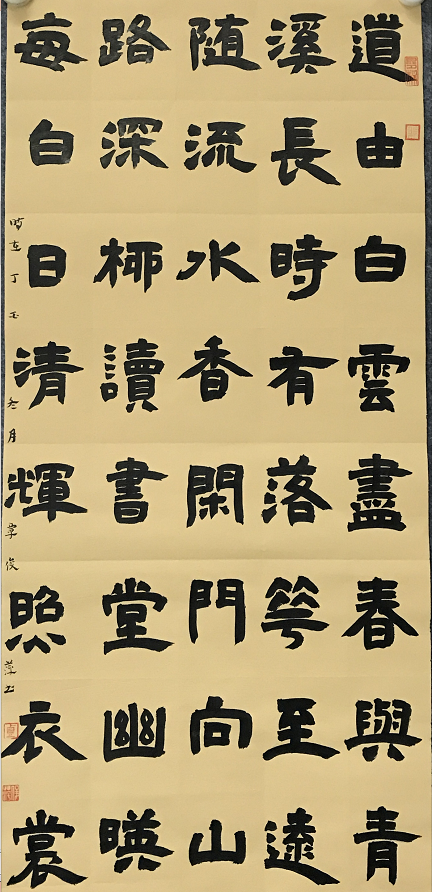 道由白雲盡春與青
溪長時有落花至遠
随流水香閑門向山
路深柳讀書堂幽暎
每白日清輝照衣裳
时在丁 冬月 俊萍书